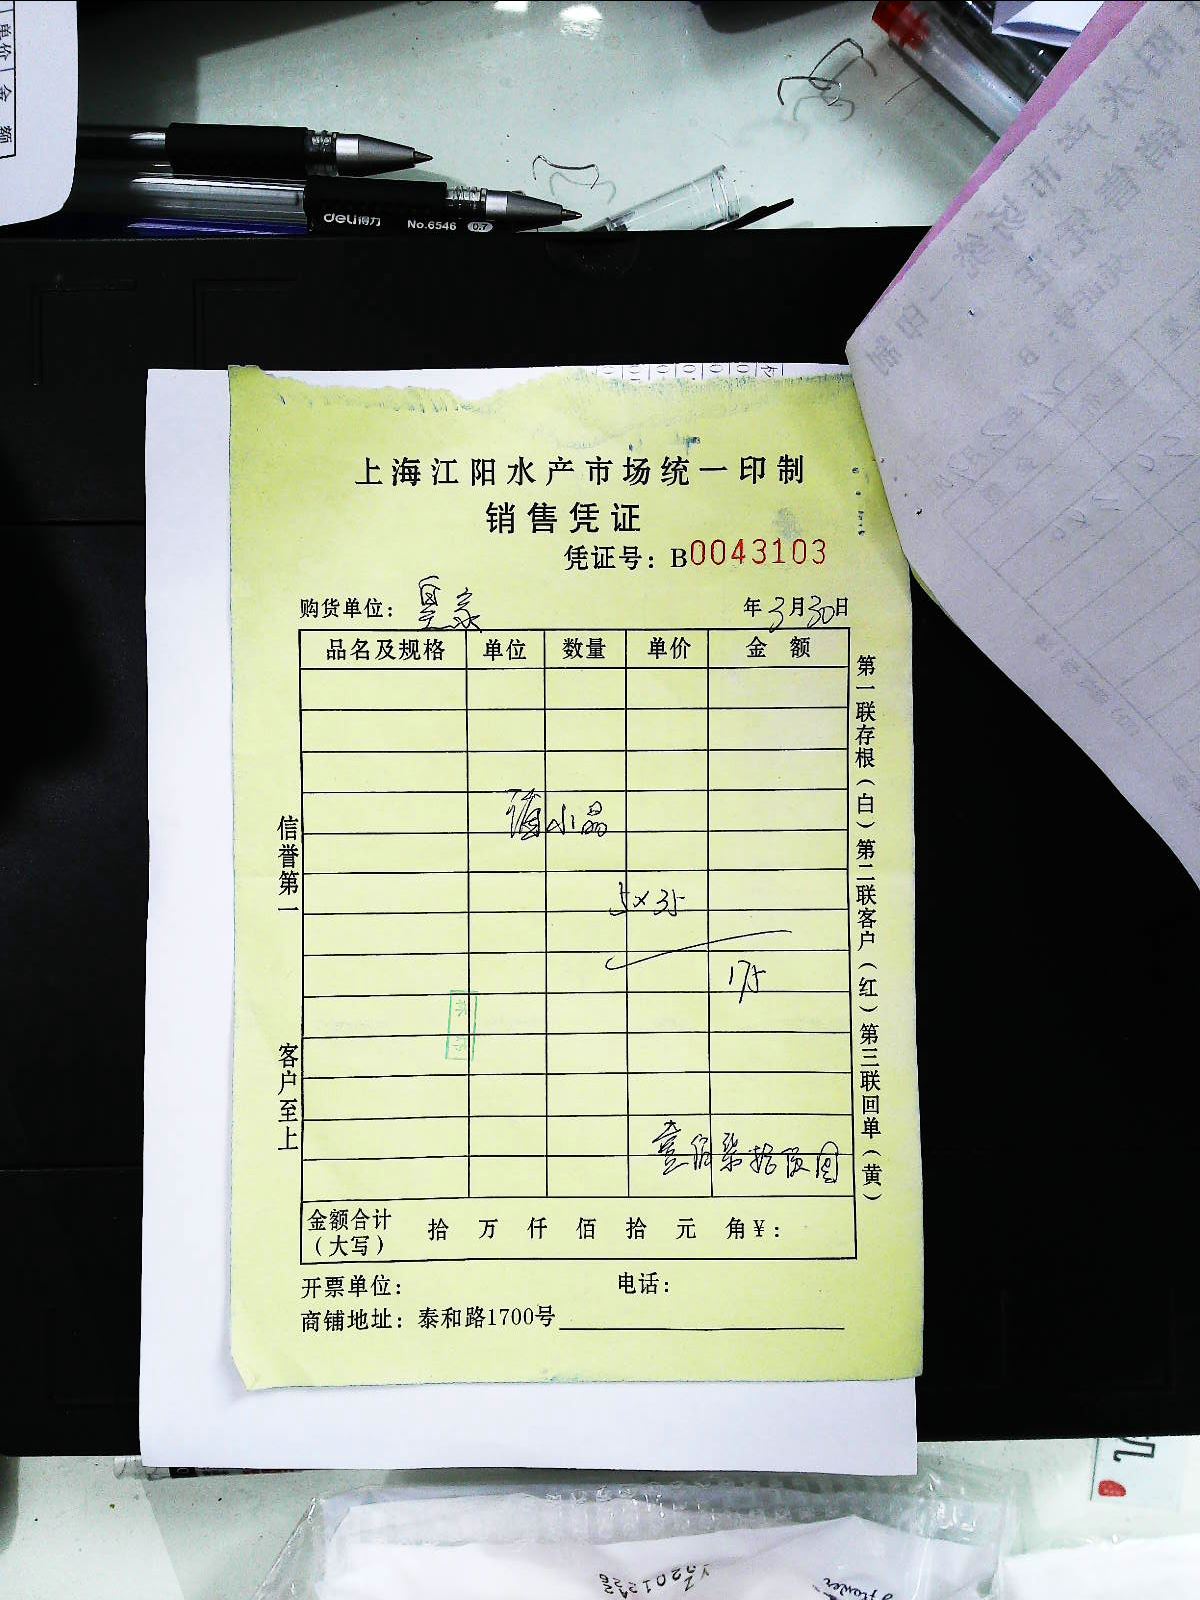 单价 金额
deli得力 No.6546 0.7
上海江阳水产市场统一印制
销售凭证
凭证号：B0043103
购货单位：皇家 年3月30日
品名及规格 单位 数量 单价 金额
水晶
5×35
175
壹佰柒拾伍圆
金额合计（大写） 拾 万 仟 佰 拾 元 角￥：
开票单位： 电话：
商铺地址：泰和路1700号
信誉第一 客户至上
第一联存根（白）第二联客户（红）第三联回单（黄）